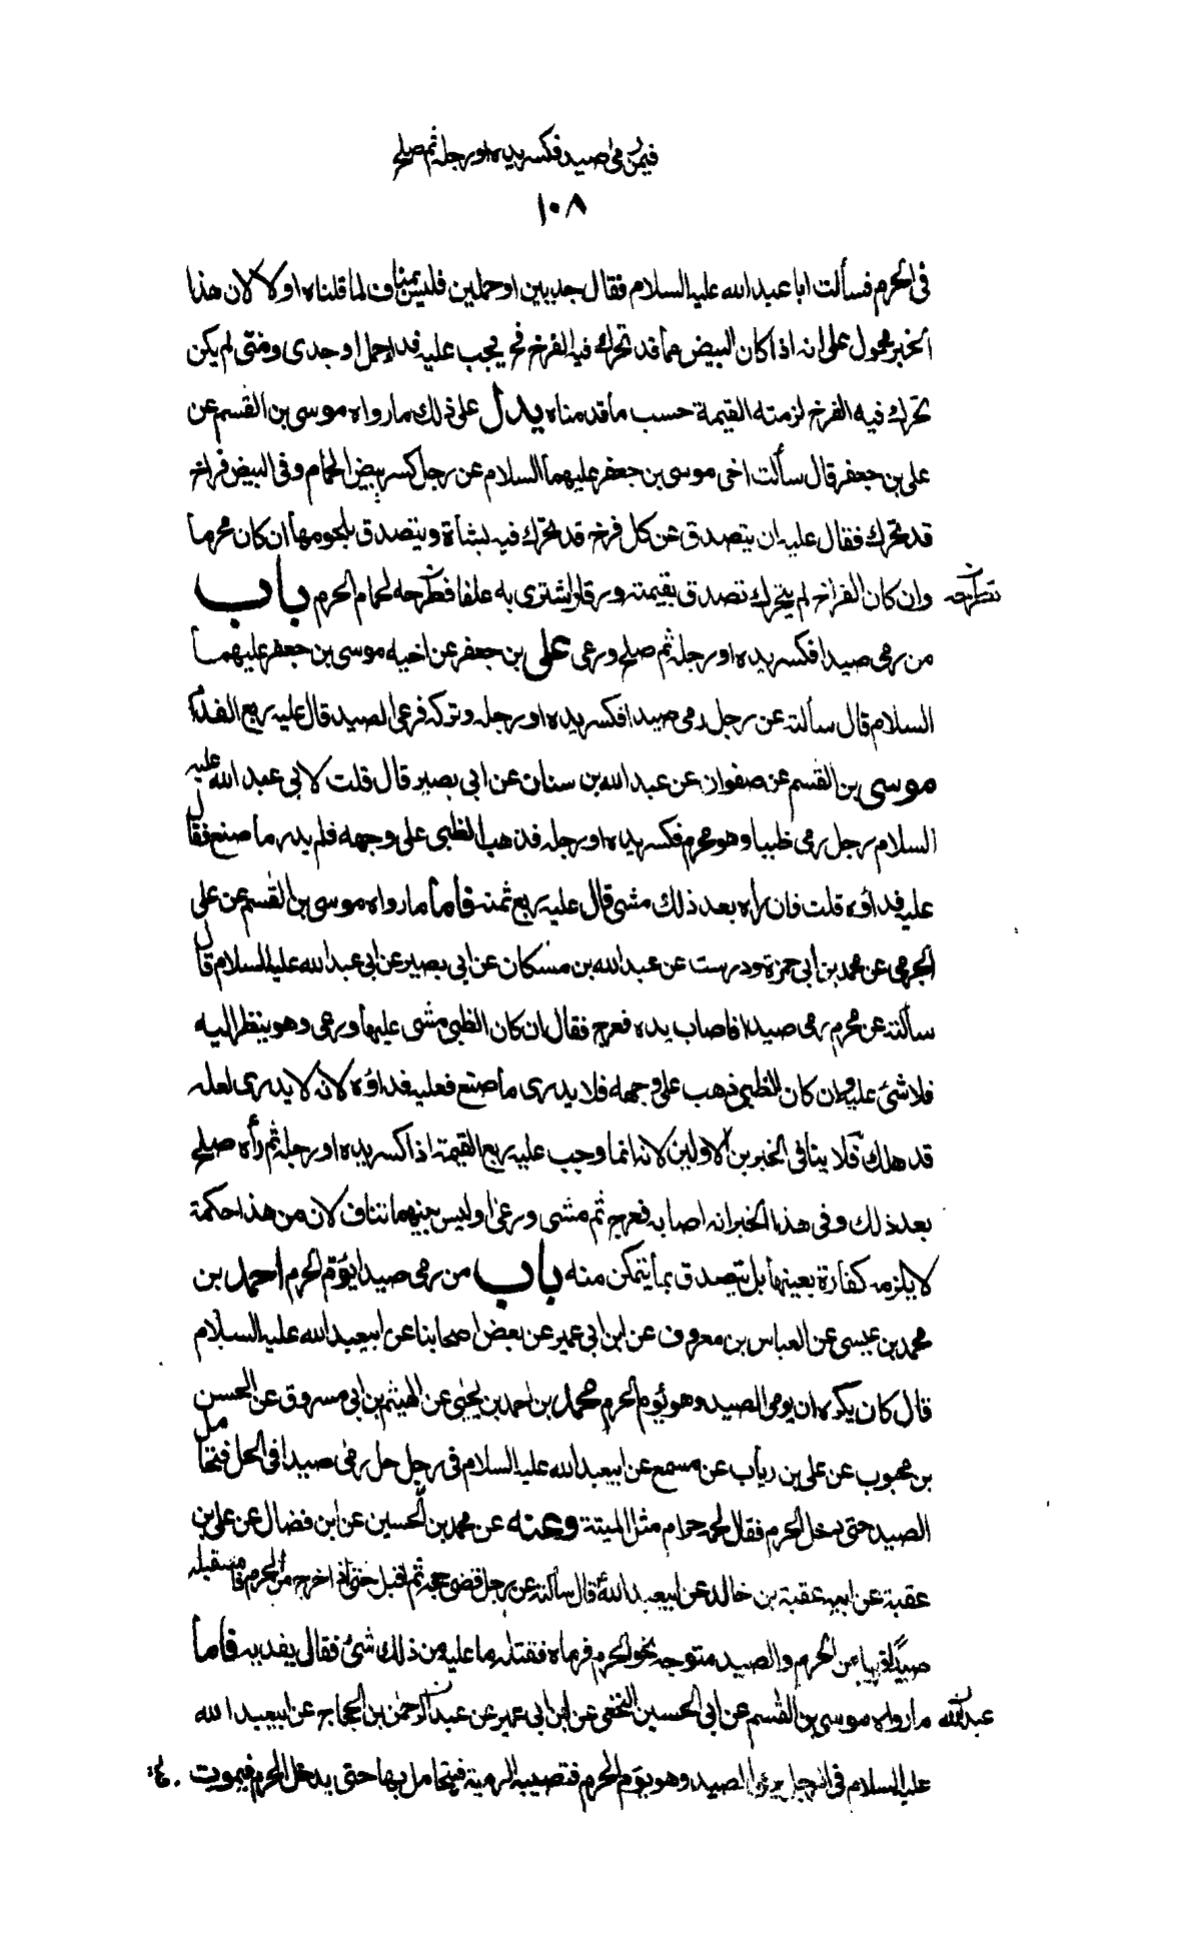 فيمن رمى صيد فكسر يده او رجله ثم صلح
١٠٨
فى الحرم فسألت ابا عبد الله عليه السلام فقال جديين او حملين فليس بمناف لما قلناه اولا لان هذا
الخبر محمول على انه اذا كان البيض مما قد تحرك فيه الفرخ فح يجب عليه فداء حمل او جدى ومتى لم يكن
تحرك فيه الفرخ لزمته القيمة حسب ما قدمناه يدل على ذلك ما رواه موسى بن القسم عن
على بن جعفر قال سألت اخى موسى بن جعفر عليهما السلام عن رجل كسر بيض الحمام وفى البيض فراخ
قد تحرك فقال عليه ان يتصدق عن كل فرخ قد تحرك فيه بشاة ويتصدق بلحومها ان كان محرما
وان كان الفراخ لم يتحرك تصدق بقيمته ورقا واشترى به علفا فطرحه لحمام الحرم باب
من رمى صيدا فكسر يده او رجله ثم صلح ورعى على بن جعفر عن اخيه موسى بن جعفر عليهما
السلام قال سألته عن رجل رمى صيدا فكسر يده او رجله وتركه فرعى الصيد قال عليه ربع الفداء
موسى بن القسم عن صفوان عن عبد الله بن سنان عن ابى بصير قال قلت لابى عبد الله عليه
السلام رجل رمى ظبيا وهو محرم فكسر يده او رجله فذهب الظبى على وجهه فلم يدر ما صنع فقال
عليه فداؤه قلت فان راه بعد ذلك مشى قال عليه ربع ثمنه فاما ما رواه موسى بن القسم عن على
الجرمى عن محمد بن ابى حمزة ودرست عن عبد الله بن مسكان عن ابى بصير عن ابى عبد الله عليه السلام قال
سألته عن محرم رمى صيدا فاصاب يده فعرج فقال ان كان الظبى مشى عليها ورعى وهو ينظر اليه
فلا شئ عليه وان كان الظبى ذهب على وجهه فلا يدرى ما صنع فعليه فداؤه لانه لا يدرى لعله
قد هلك فلا ينافى الخبرين الاولين لانه انما وجب عليه ربع القيمة اذا كسر يده او رجله ثم رأه صلح
بعد ذلك وفى هذا الخبر انه اصابه فعرج ثم مشى ورعى اوليس بينهما تناف لان من هذا حكمة
لا يلزمه كفارة بعينها بل يتصدق بما يتمكن منه باب من رمى صيدا يؤم الحرم احمد بن
محمد بن عيسى عن العباس بن معروف عن ابن ابى عمير عن بعض اصحابنا عن ابيعبد الله عليه السلام
قال كان يكره ان يرمى الصيد وهو يؤم الحرم محمد بن احمد بن يحيى عن الهيثم بن ابى مسروق عن الحسن
بن محبوب عن على بن رياب عن مسمع عن ابيعبد الله عليه السلام فى رجل حل رمى صيدا فى الحل فيتحامل
الصيد حتى يدخل الحرم فقال لحمه حرام مثل الميتة وعنه عن محمد بن الحسين عن ابن فضال عن على بن
عقبة عن ابيه عقبة بن خالد عن ابيعبد الله قال سألته عن رجل قضى حجه ثم اقبل حتى اذا خرج من الحرم فاستقبله
صيد قريبا من الحرم والصيد متوجه نحو الحرم فرماه فقتله ما عليه من ذلك شئ فقال يفديه فاما
ما رواه موسى بن القسم عن ابى الحسين النخعى عن ابن ابى عمير عن عبد الرحمن بن الحجاج عن ابيعبد الله
عليه السلام فى الرجل يرمى الصيد وهو يؤم الحرم فتصيبه الرمية فيتحامل بها حتى يدخل الحرم فيموت
عبد الله